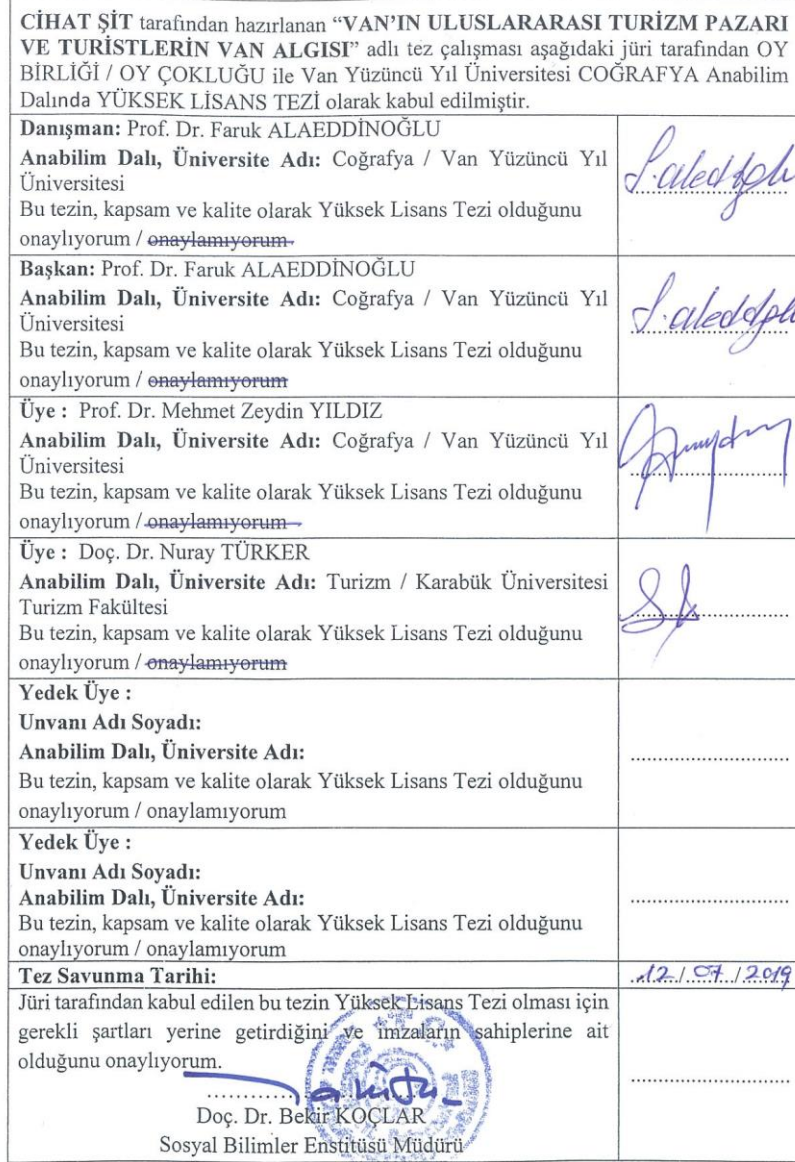 CİHAT ŞİT tarafından hazırlanan “VAN’IN ULUSLARARASI TURİZM PAZARI
VE TURİSTLERİN VAN ALGISI” adlı tez çalışması aşağıdaki jüri tarafından OY
BİRLİĞİ / OY ÇOKLUĞU ile Van Yüzüncü Yıl Üniversitesi COĞRAFYA Anabilim
Dalında YÜKSEK LİSANS TEZİ olarak kabul edilmiştir.
Danışman: Prof. Dr. Faruk ALAEDDİNOĞLU
Anabilim Dalı, Üniversite Adı: Coğrafya / Van Yüzüncü Yıl
Üniversitesi
Bu tezin, kapsam ve kalite olarak Yüksek Lisans Tezi olduğunu
onaylıyorum / onaylamıyorum
Başkan: Prof. Dr. Faruk ALAEDDİNOĞLU
Anabilim Dalı, Üniversite Adı: Coğrafya / Van Yüzüncü Yıl
Üniversitesi
Bu tezin, kapsam ve kalite olarak Yüksek Lisans Tezi olduğunu
onaylıyorum / onaylamıyorum
Üye : Prof. Dr. Mehmet Zeydin YILDIZ
Anabilim Dalı, Üniversite Adı: Coğrafya / Van Yüzüncü Yıl
Üniversitesi
Bu tezin, kapsam ve kalite olarak Yüksek Lisans Tezi olduğunu
onaylıyorum / onaylamıyorum
Üye : Doç. Dr. Nuray TÜRKER
Anabilim Dalı, Üniversite Adı: Turizm / Karabük Üniversitesi
Turizm Fakültesi
Bu tezin, kapsam ve kalite olarak Yüksek Lisans Tezi olduğunu
onaylıyorum / onaylamıyorum
Yedek Üye :
Unvanı Adı Soyadı:
Anabilim Dalı, Üniversite Adı:
Bu tezin, kapsam ve kalite olarak Yüksek Lisans Tezi olduğunu
onaylıyorum / onaylamıyorum
Yedek Üye :
Unvanı Adı Soyadı:
Anabilim Dalı, Üniversite Adı:
Bu tezin, kapsam ve kalite olarak Yüksek Lisans Tezi olduğunu
onaylıyorum / onaylamıyorum
Tez Savunma Tarihi: 12 / 07 / 2019
Jüri tarafından kabul edilen bu tezin Yüksek Lisans Tezi olması için
gerekli şartları yerine getirdiğini ve imzaların sahiplerine ait
olduğunu onaylıyorum.
Doç. Dr. Bekir KOÇLAR
Sosyal Bilimler Enstitüsü Müdürü